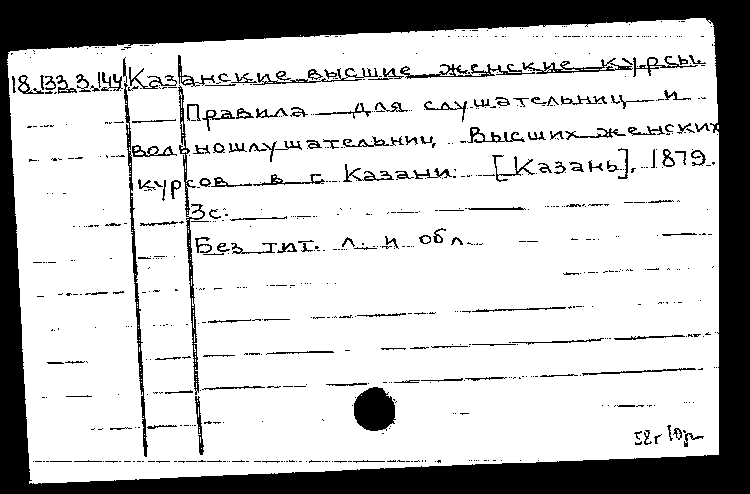 18.133.3.144 Казанские высшие женские курсы.
Правила для слушательниц и
вольношлушательниц Высших женских
курсов в г. Казани. [Казань], 1879.
3с.
Без тит. л. и обл.